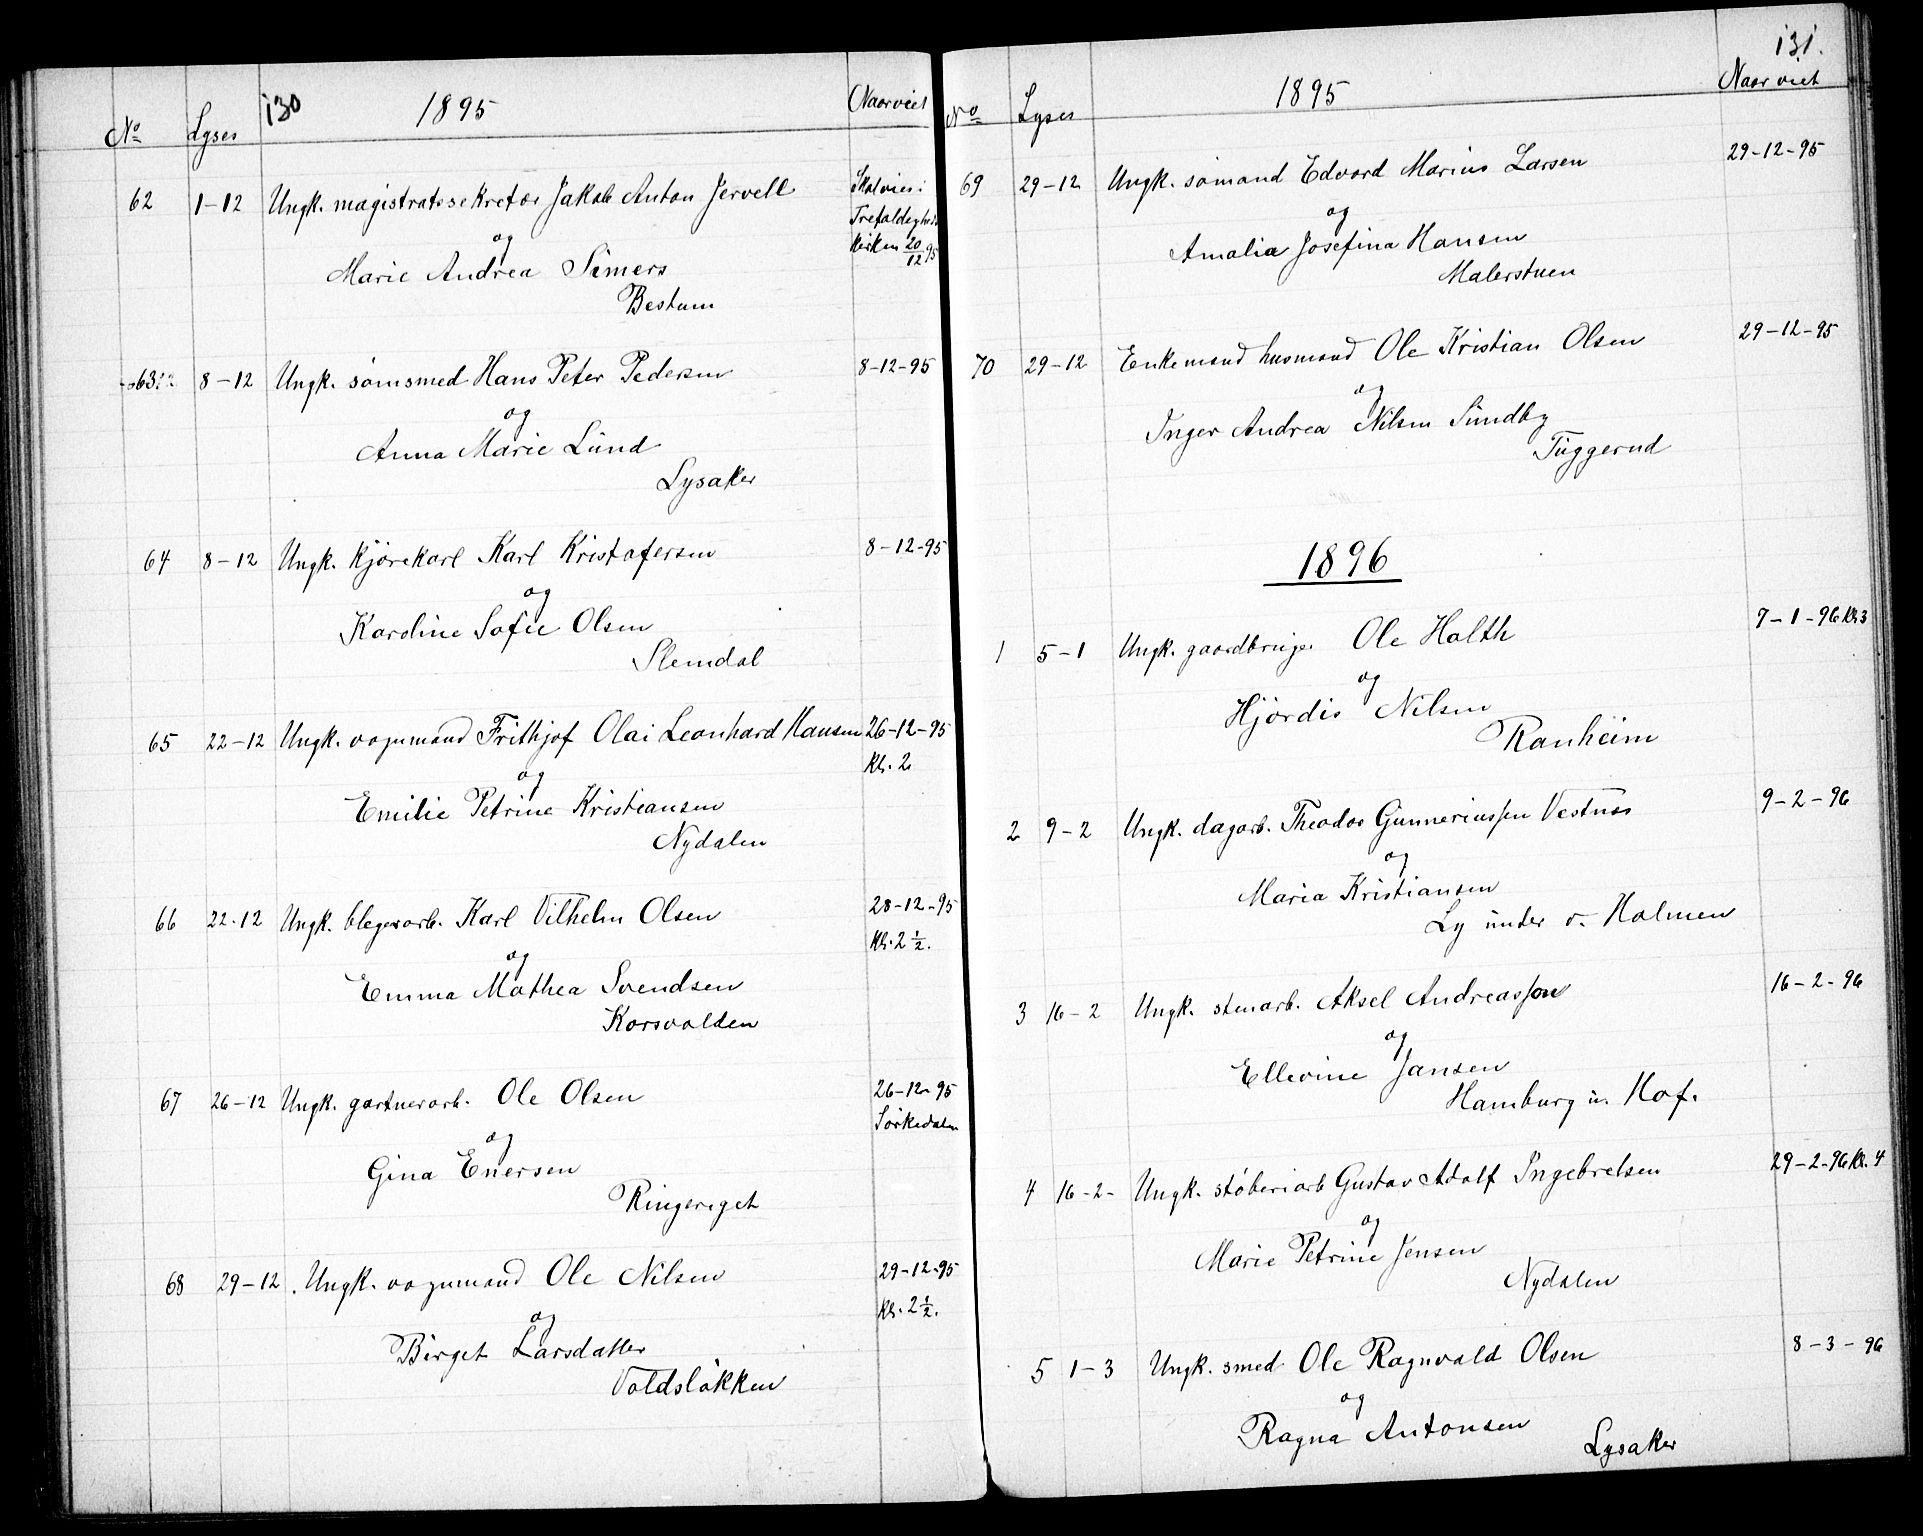 130
1895
No Lyses Naar viet
62 1-12 Ungk. magistratssekretær Jakob Anton Jervell Skal vies i
Trefoldigheds
og kirken 20/12 95
Marie Andrea Simers
Bestum
63 8-12 Ungk. sømsmed Hans Peter Pedersen 8-12-95
og
Anna Marie Lund
Lysaker
64 8-12 Ungk. kjørekarl Karl Kristofersen 8-12-95
og
Karoline Sofie Olsen
Slemdal
65 22-12 Ungk. vognmand Frithjof Olai Leonhard Hansen 26-12-95
Kl. 2
og
Emilie Petrine Kristiansen
Nydalen
66 22-12 Ungk. blegerarb. Karl Vilhelm Olsen 28-12-95
Kl. 2 1/2.
og
Emma Mathea Svendsen
Korsvolden
67 26-12 Ungk. gartnerarb. Ole Olsen 26-12-95
Sørkedalen
og
Gina Enersen
Ringeriget
68 29-12. Ungk. vognmand Ole Nilsen 29-12-95
Kl. 2 1/2.
og
Birget Larsdatter
Voldsløkken
131.
1895
No Lyses Naar viet
69 29-12 Ungk. sømand Edvard Marius Larsen 29-12-95
og
Amalia Josefina Hansen
Malerstuen
70 29-12 Enkemand husmand Ole Kristian Olsen 29-12-95
og
Inger Andrea Nilsen Sundby
Tuggerud
1896
1 5-1 Ungk. gaardbruger Ole Holth 7-1-96 Kl. 3
og
Hjørdis Nilsen
Ranheim
2 9-2 Ungk. dagarb. Theodor Gunneriussen Vestnes 9-2-96
og
Maria Kristiansen
Ly under v. Holmen
3 16-2 Ungk. stenarb. Aksel Andreasson 16-2-96
og
Ellevine Jansen
Hamburg u. Hof.
4 16-2- Ungk. støberiarb Gustav Adolf Ingebretsen 29-2-96 Kl. 4
og
Marie Petrine Jensen
Nydalen
5 1-3 Ungk. smed Ole Ragnvald Olsen 8-3-96
og
Ragna Antonsen
Lysaker